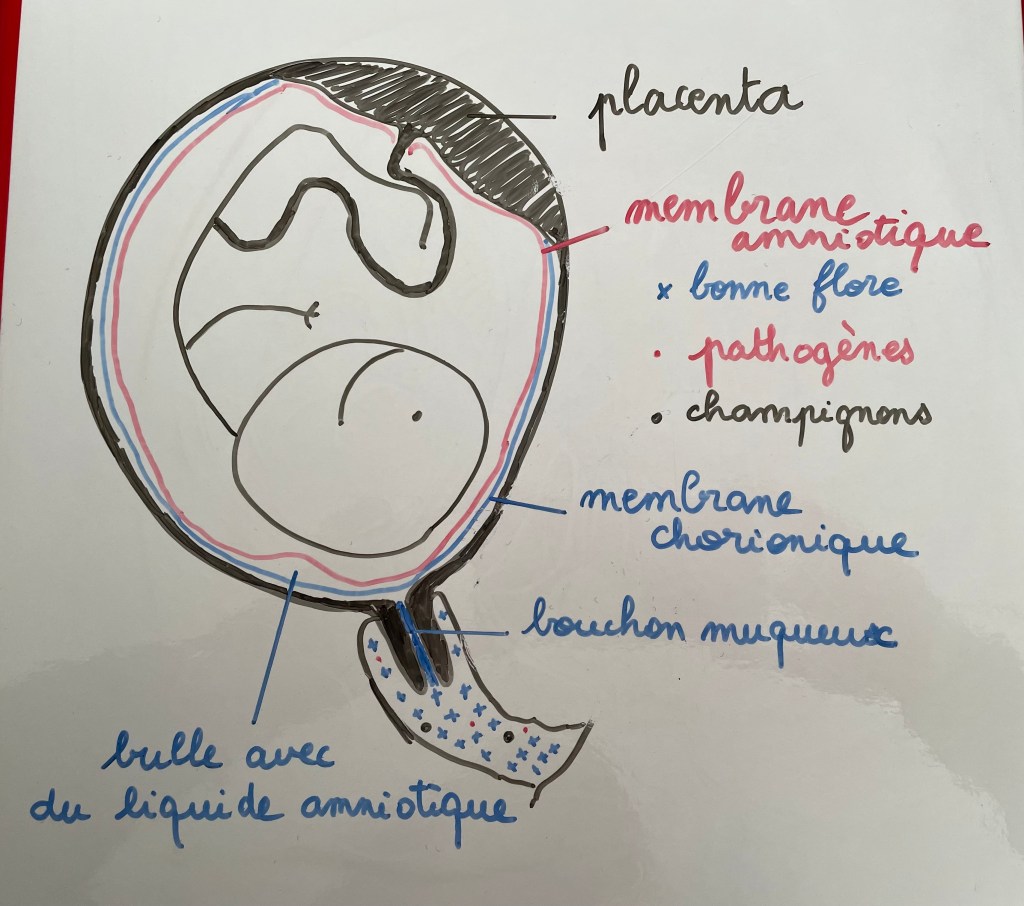 placenta
membrane
amniotique
x bonne flore
• pathogènes
• champignons
membrane
chorionique
bouchon muqueux
bulle avec
du liquide amniotique